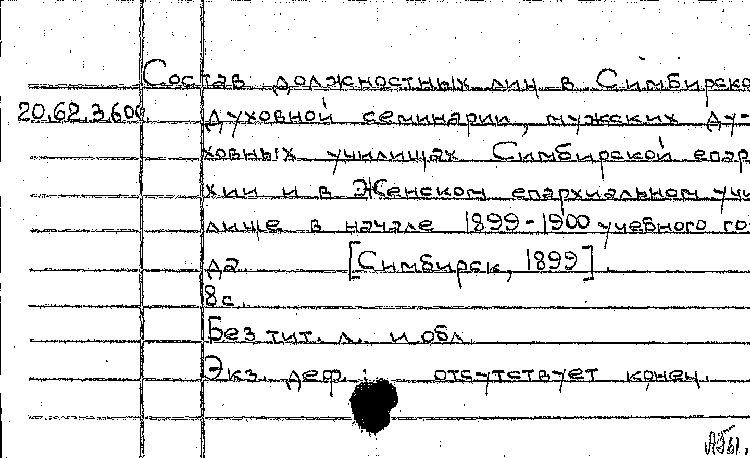 Состав должностных лиц в Симбирско
20.62.3.606. духовной семинарии, мужских ду-
ховных училищах Симбирской епар
хии и в Женском епархиальном учи
лище в начале 1899-1900 учебного го
да [Симбирск, 1899].
8 с.
Без тит. л. и обл.
Экз. деф.: отсутствует конец.